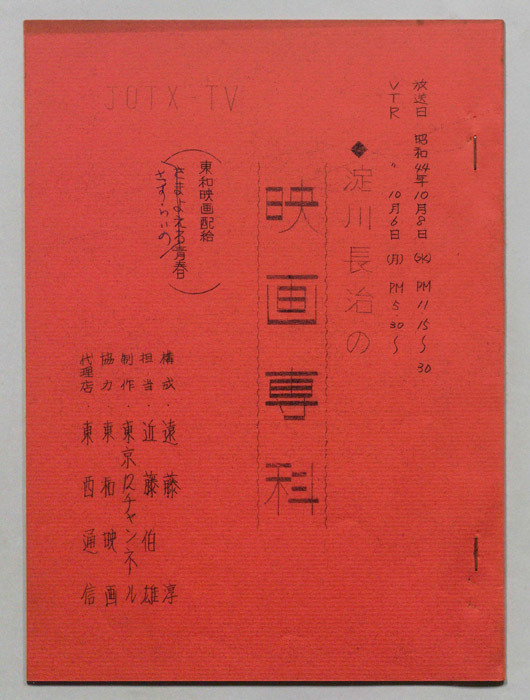 放送日 昭和44年10月8日(水) PM 11.15〜30
VTR 〃 10月6日(月) PM 5.30〜
◆淀川長治の
映画専科
東和映画配給
(さまよえる青春)
さすらいの
JOTX-TV
構成・遠藤 淳
担当・近藤伯雄
制作・東京12チャンネル
協力・東和映画
代理店・東西通信